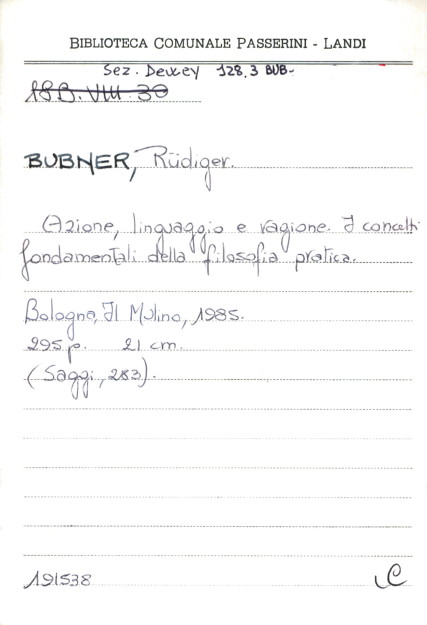 BIBLIOTECA COMUNALE PASSERINI - LANDI
Sez. Dewey 128.3 BUB-
18B.VIII 30
BUBNER, Rüdiger.
Azione, linguaggio e ragione. I concetti
fondamentali della filosofia pratica.
Bologna, Il Mulino, 1985.
295 p. 21 cm.
(Saggi, 283).
191538 C